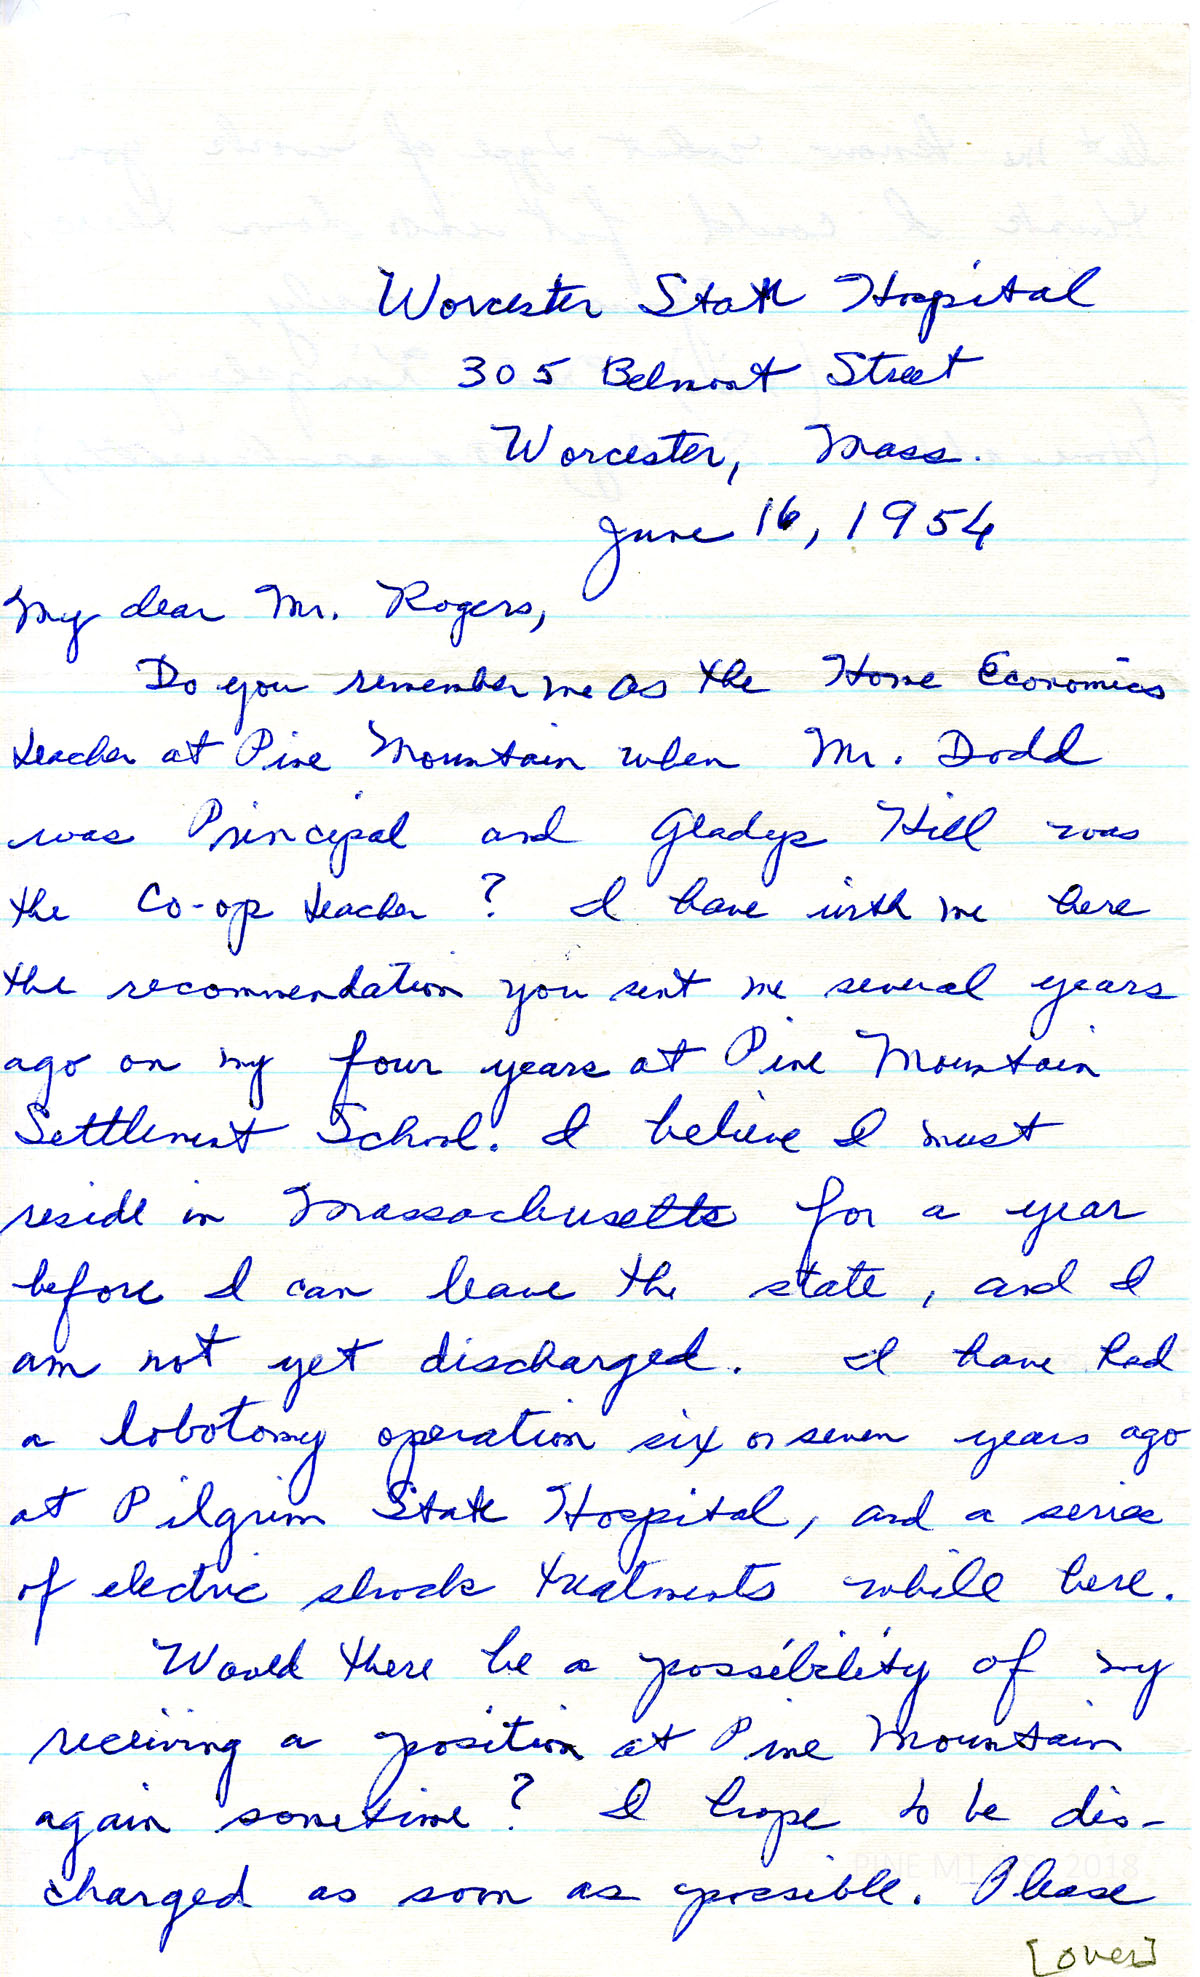 Worcester State Hospital
305 Belmont Street
Worcester, Mass.
June 16, 1954
My dear Mr. Rogers,
Do you remember me as the Home Economics
teacher at Pine Mountain when Mr. Dodd
was Principal and Gladys Hill was
the Co-op teacher? I have with me here
the recommendation you sent me several years
ago on my four years at Pine Mountain
Settlement School. I believe I must
reside in Massachusetts for a year
before I can leave the state, and I
am not yet discharged. I have had
a lobotomy operation six or seven years ago
at Pilgrim State Hospital, and a series
of electric shock treatments while here.
Would there be a possibility of my
receiving a position at Pine Mountain
again sometime? I hope to be dis-
charged as soon as possible. Please
[over]